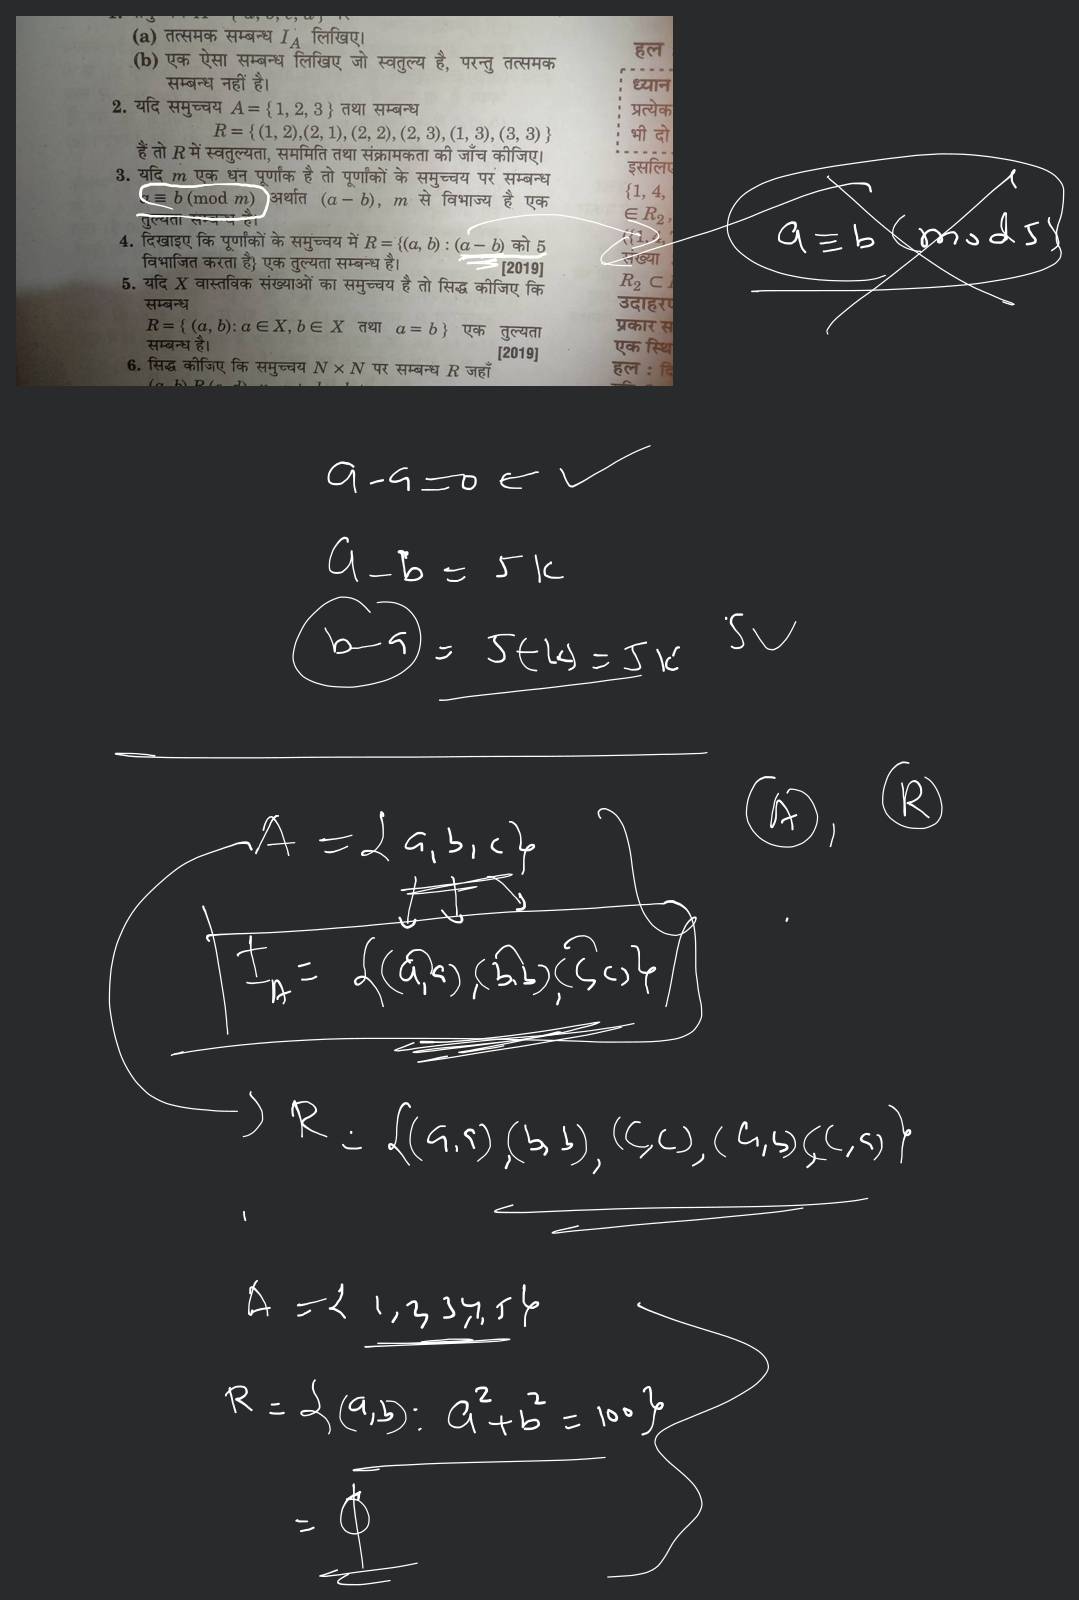 (a) तत्समक सम्बन्ध I_A लिखिए।
(b) एक ऐसा सम्बन्ध लिखिए जो स्वतुल्य है, परन्तु तत्समक
सम्बन्ध नहीं है।
2. यदि समुच्चय A = { 1, 2, 3 } तथा सम्बन्ध
R = { (1, 2),(2, 1), (2, 2), (2, 3), (1, 3), (3, 3) }
है तो R में स्वतुल्यता, सममिति तथा संक्रामकता की जाँच कीजिए।
3. यदि m एक धन पूर्णांक है तो पूर्णांकों के समुच्चय पर सम्बन्ध
≡ b (mod m) अर्थात (a − b), m से विभाज्य है एक
तुल्यता सम्बन्ध है।
4. दिखाइए कि पूर्णांकों के समुच्चय में R = {(a, b) : (a − b) को 5
विभाजित करता है} एक तुल्यता सम्बन्ध है। [2019]
5. यदि X वास्तविक संख्याओं का समुच्चय है तो सिद्ध कीजिए कि
सम्बन्ध
R = { (a, b): a ∈ X, b ∈ X तथा a = b } एक तुल्यता
सम्बन्ध है। [2019]
6. सिद्ध कीजिए कि समुच्चय N × N पर सम्बन्ध R जहाँ
हल
ध्यान
प्रत्येक
भी दो
इसलिए
{1, 4,
∈ R2,
संख्या
R2 ⊂
उदाहरण
प्रकार स
एक स्थि
हल : दि
a ≡ b (mod 5)
a - a = 0 ∈ ✓
a - b = 5k
b - a = 5(-k) = 5k 5✓
(A), (R)
A = { a, b, c }
I_A = {(a,a), (b,b), (c,c)}
R = {(a,a), (b,b), (c,c), (a,b), (c,a)}
A = { 1, 2, 3, 4, 5 }
R = { (a,b) : a² + b² = 100 }
= ϕ